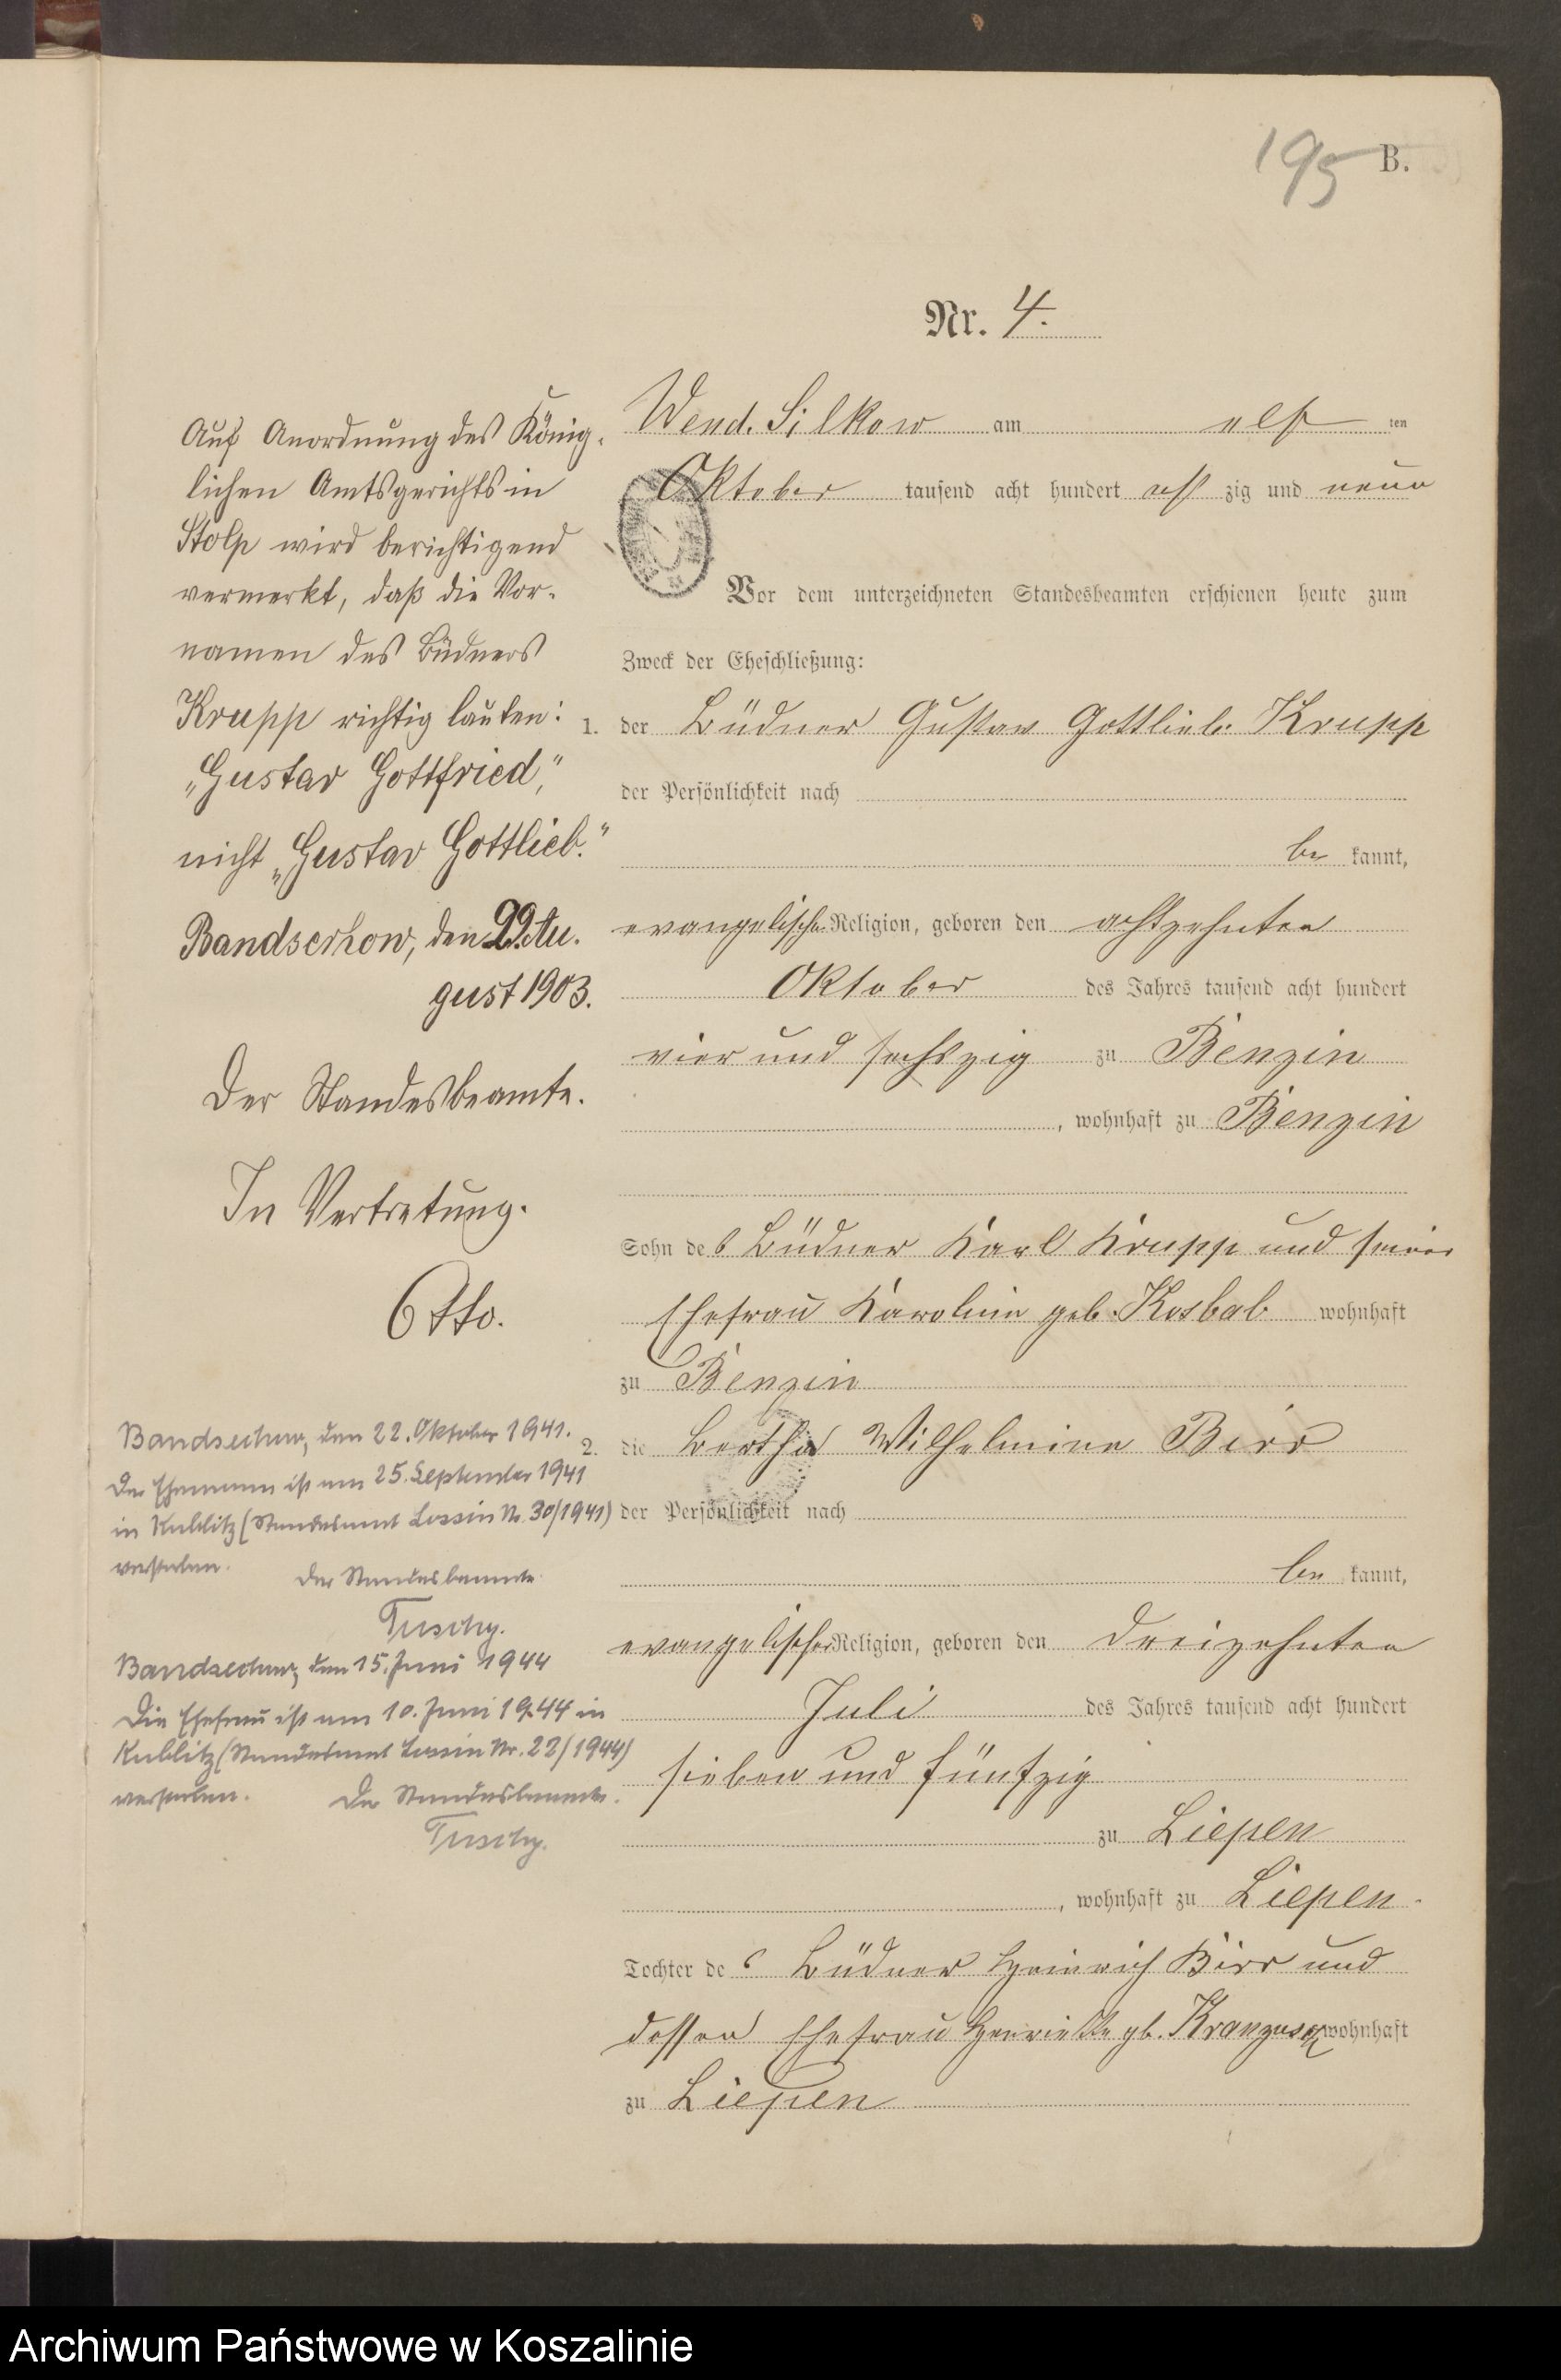 195 B.
Nr. 4.
Auf Anordnung des König-
lichen Amtsgerichts in
Stolp wird berichtigend
vermerkt, daß die Vor-
namen des Büdners
Krupp richtig lauten:
„Gustav Gottfried,“
nicht „Gustav Gottlieb.“
Bandsechow, den 29. Au-
gust 1903.
Der Standesbeamte.
In Vertretung.
Otto.
Bandsechow, den 22. Oktober 1941.
Der Ehemann ist am 25. September 1941
in Kublitz (Standesamt Lossin Nr. 30/1941)
verstorben.
Der Standesbeamte
Bandsechow, den 15. Juni 1944
Die Ehefrau ist am 10. Juni 1944 in
Kublitz (Standesamt Lossin Nr. 22/1944)
verstorben. Der Standesbeamte.
Wend. Silkow am elf ten
Oktober tausend acht hundert acht zig und neun
Vor dem unterzeichneten Standesbeamten erschienen heute zum
Zweck der Eheschließung:
1. der Büdner Gustav Gottlieb Krupp
der Persönlichkeit nach
be kannt,
evangelischer Religion, geboren den achtzehnten
Oktober des Jahres tausend acht hundert
vier und sechszig zu Benzin
, wohnhaft zu Benzin
Sohn des Büdner Karl Krupp und seiner
Ehefrau Karoline geb. Kosbab wohnhaft
zu Benzin
2. die Bertha Wilhelmine Birr
der Persönlichkeit nach
be kannt,
evangelischer Religion, geboren den dreizehnten
Juli des Jahres tausend acht hundert
sieben und fünfzig
zu Liepen
, wohnhaft zu Liepen.
Tochter des Büdner Heinrich Birr und
dessen Ehefrau Henriette gb. wohnhaft
zu Liepen
Archiwum Państwowe w Koszalinie